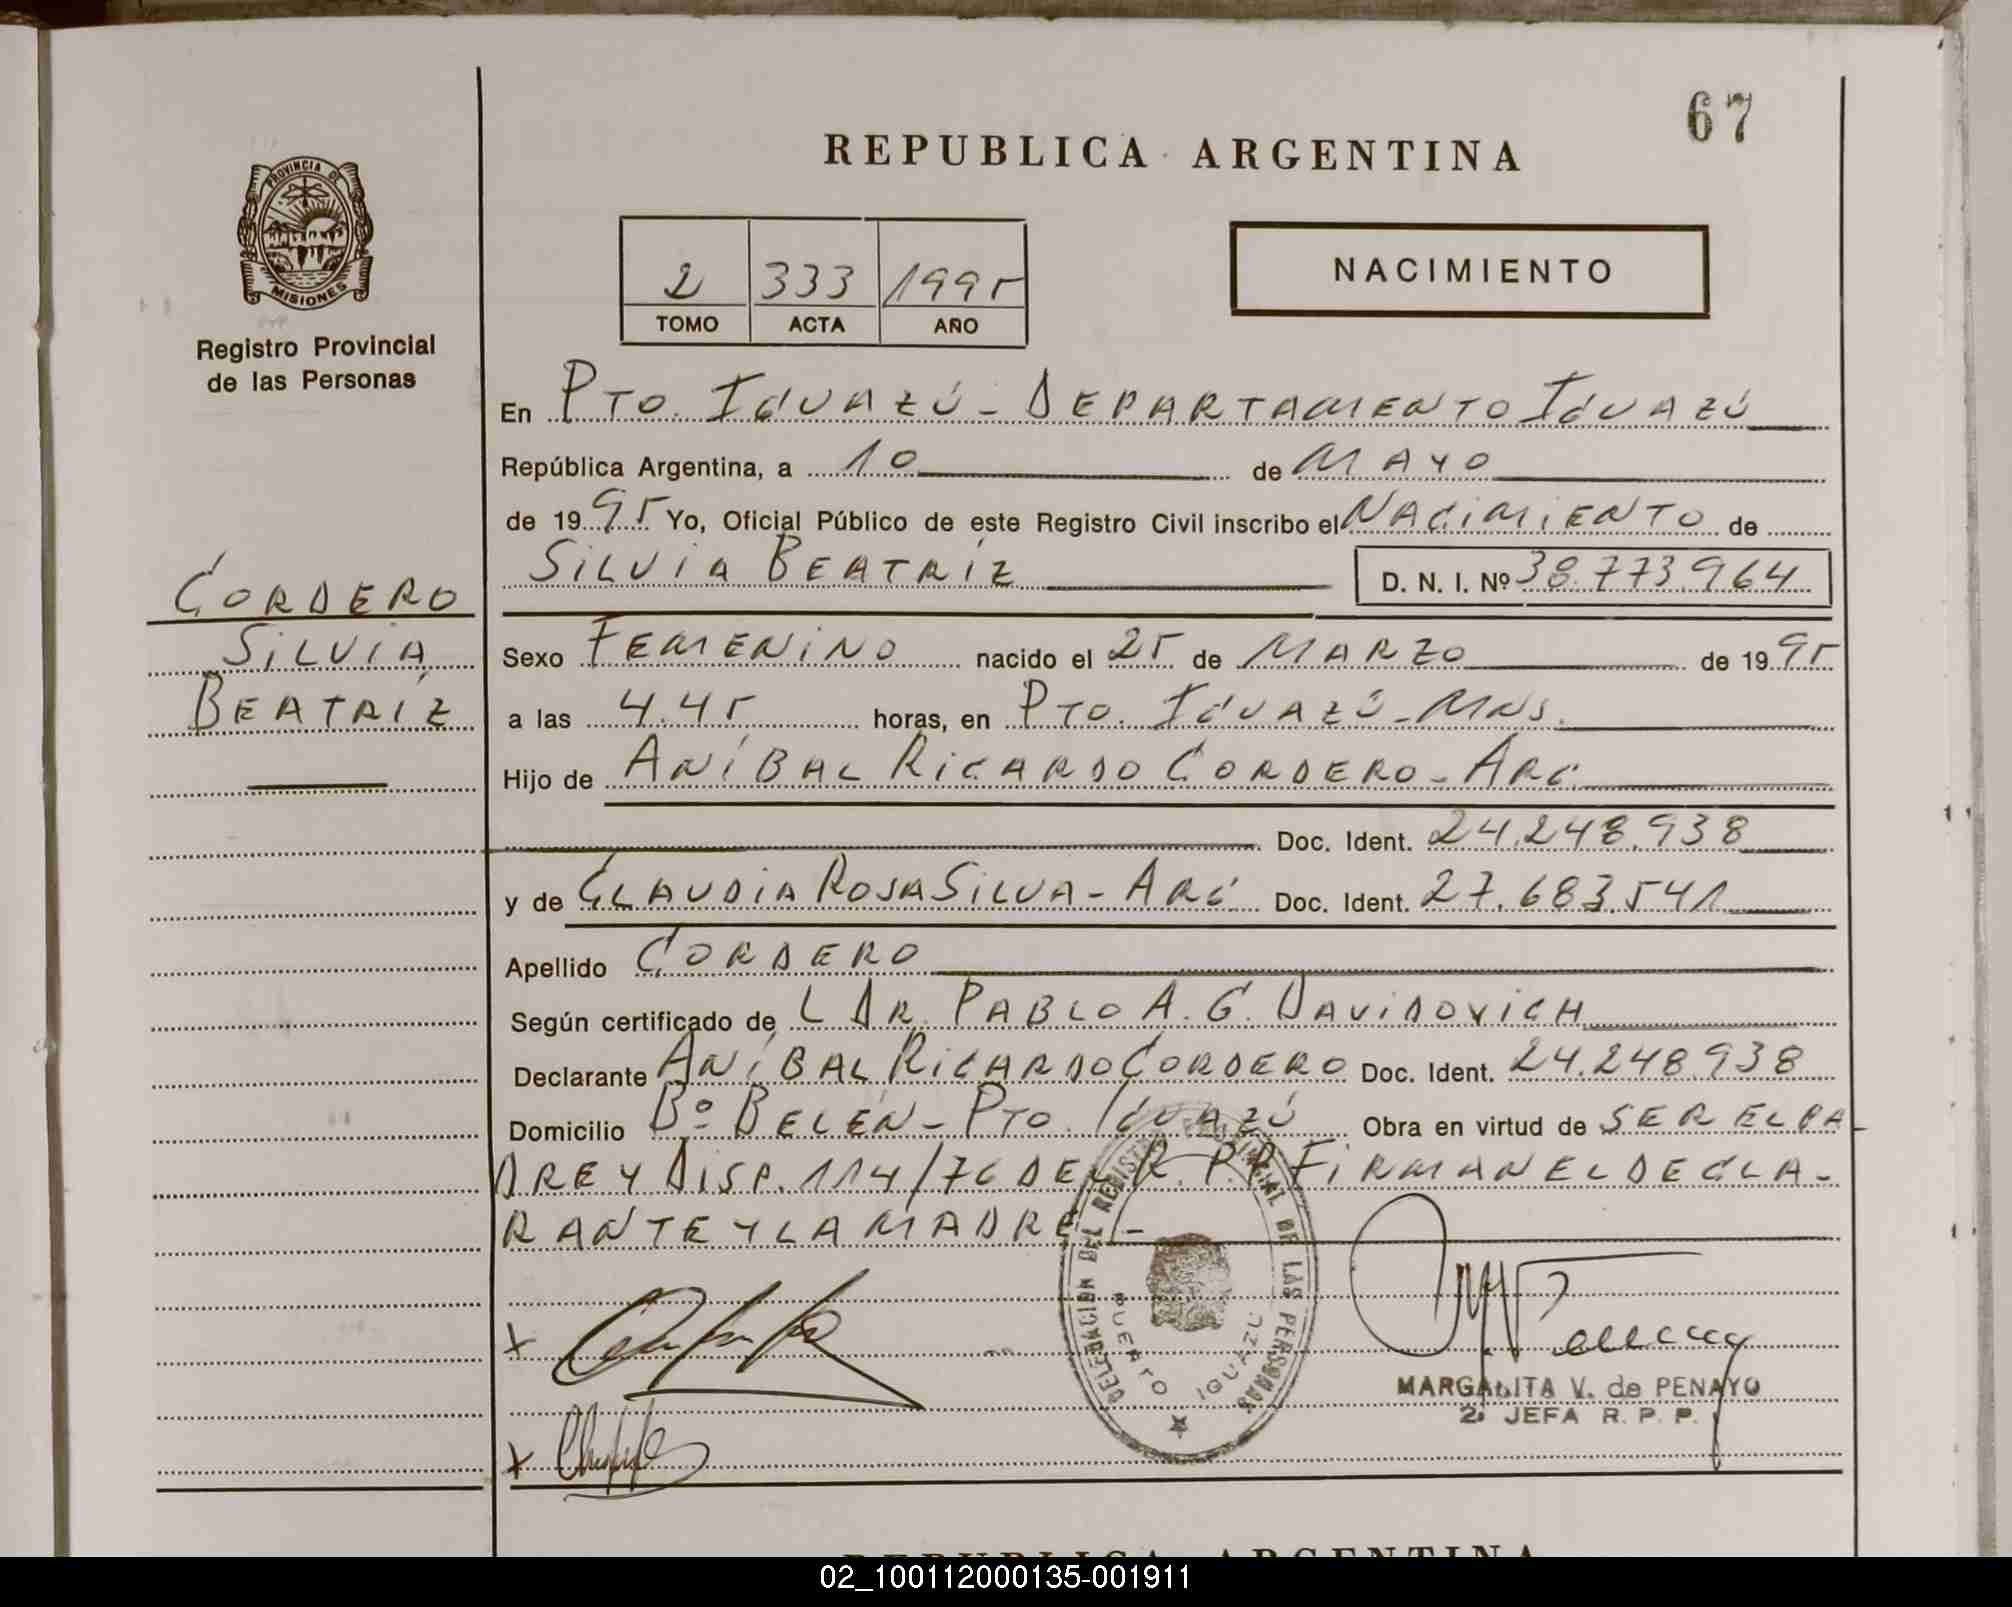 67
REPUBLICA ARGENTINA
PROVINCIA DE
MISIONES
Registro Provincial
de las Personas
2 333 1995
TOMO ACTA AÑO
NACIMIENTO
En PTO. IGUAZÚ - DEPARTAMENTO IGUAZÚ
República Argentina, a 10 de MAYO
de 19 95 Yo, Oficial Público de este Registro Civil inscribo el NACIMIENTO de
SILVIA BEATRÍZ D. N. I. Nº 38.773.964
CORDERO
SILVIA
BEATRÍZ
Sexo FEMENINO nacido el 25 de MARZO de 19 95
a las 4.45 horas, en PTO. IGUAZÚ - MNS.
Hijo de ANÍBAL RICARDO CORDERO - ARG.
Doc. Ident. 24.248.938
y de CLAUDIA ROSA SILVA - ARG. Doc. Ident. 27.683.541
Apellido CORDERO
Según certificado de L DR. PABLO A. G. DAVIDOVICH
Declarante ANÍBAL RICARDO CORDERO Doc. Ident. 24.248.938
Domicilio Bº BELÉN - PTO. IGUAZÚ Obra en virtud de SER EL PA
DRE Y DISP. 114/76 DEL R. P. P. FIRMAN EL DECLA-
RANTE Y LA MADRE.-
DELEGACION DEL REGISTRO PROVINCIAL DE LAS PERSONAS
PUERTO IGUAZU
MARGARITA V. de PENAYO
2ª JEFA R. P. P.
REPUBLICA ARGENTINA
02_100112000135-001911